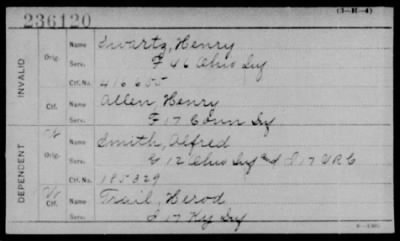 236120
(3-H-4)
INVALID
Orig.
Name Swartz, Henry
Serv. F 46 Ohio Inf
Ctf. No. 416655
Ctf.
Name Allen, Henry
Serv. F 17 Conn Inf
DEPENDENT
Orig.
Name Smith, Alfred
Serv. G 12 Ohio Inf and I 17 VRC
Ctf. No. 185329
Ctf.
Name Trail, Herod
Serv. I 17 Ky Inf